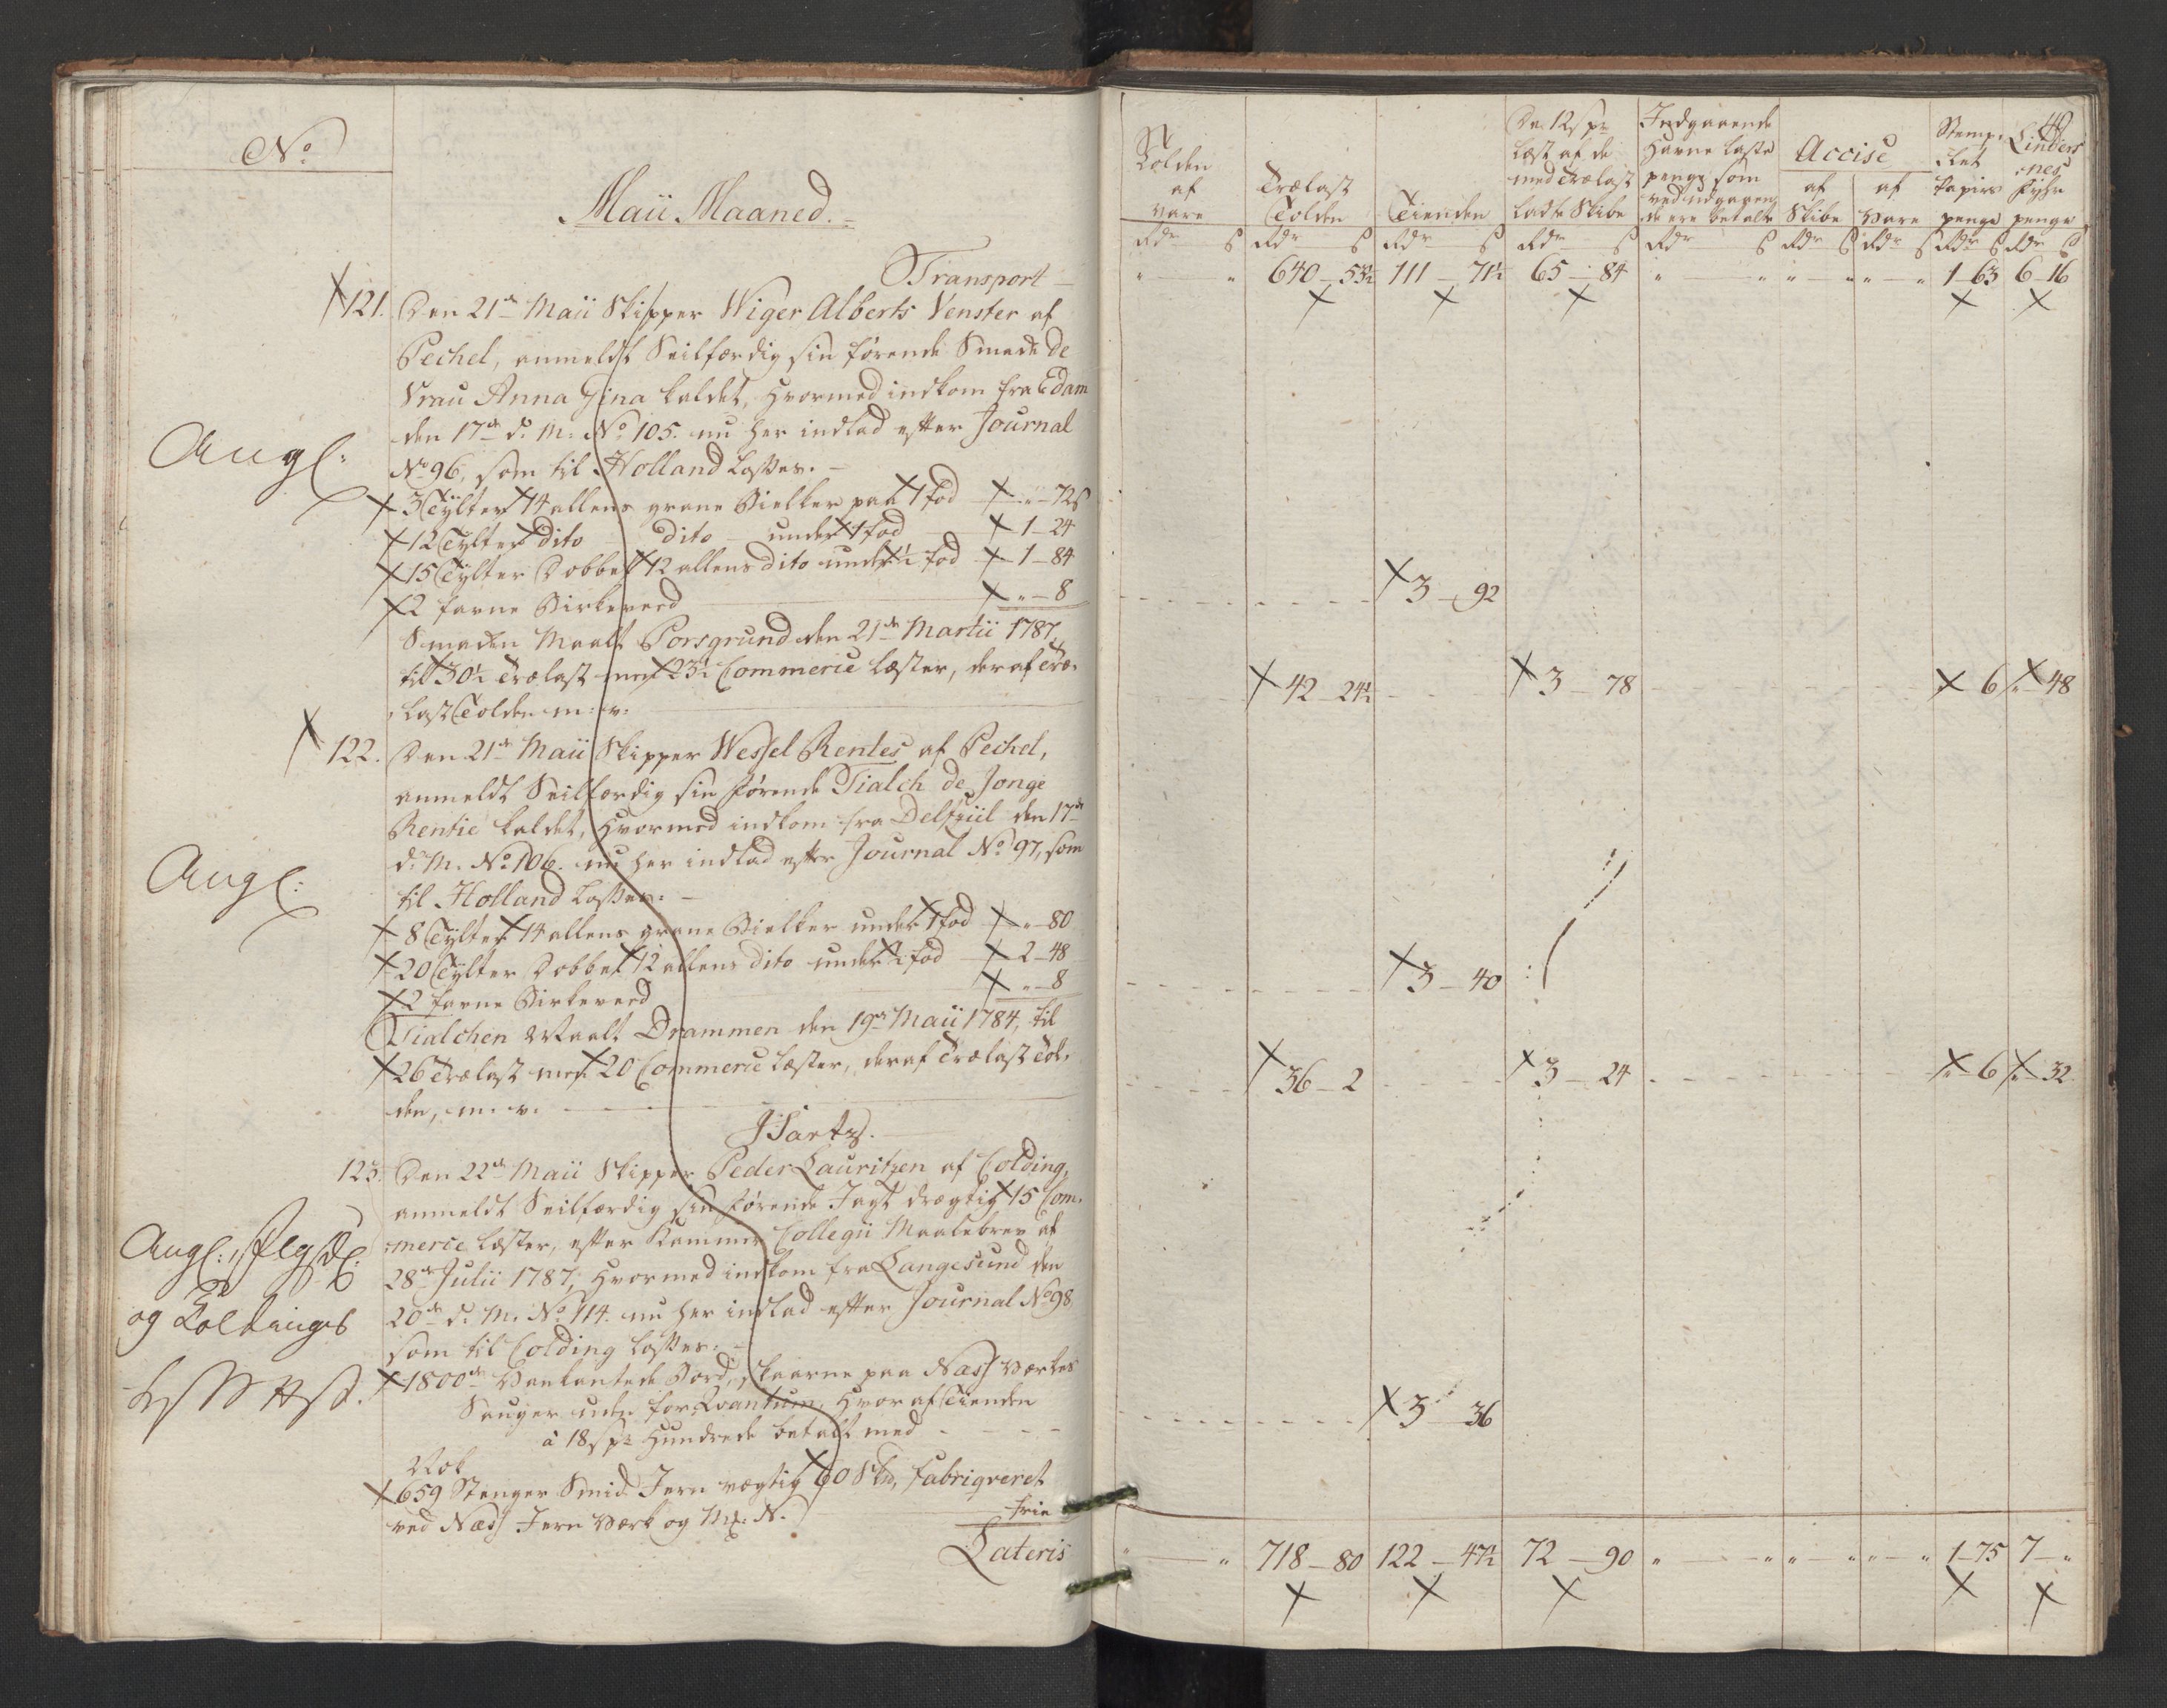 No
Maii Maaned.
Transport
121. Den 21de Maii Skipper Wiger Alberts Venster af
Pechel, anmeldt Seilfærdig sin førende Smack de
Vrau Anna Gina kaldet, hvormed indkom fra Edam
den 17de d. M. No 105. nu her indlad efter Journal
No 96, som til Holland losses.
Angl:
3 Tylter 14 allens grane Bielker paa 1 fod " - 72 s
12 Tylter dito dito under 1 fod 1 - 24
15 Tylter Dobbelt 12 allens dito under ½ fod 1 - 84
2 favne Birkeved " - 8
Smacken Maalt Porsgrund den 21de Martii 1787,
til 30½ Trælast mod 23½ Commerce læster, deraf Træ-
last Tolden m: v:
122. Den 21de Maii Skipper Wessel Rentes af Pechel,
anmeldt Seilfærdig sin førende Tialch de Jonge
Rentie kaldet, hvormed indkom fra Delfziil den 17de
d. M. No 106. nu her indlad efter Journal No 97, som
til Holland losses:
Angl:
8 Tylter 14 allens grane Bielker under 1 fod " - 80
20 Tylter Dobbelt 12 allens dito under ½ fod 2 - 48
2 favne Birkeved " - 8
Tialchen Maalt Drammen den 19de Maii 1784, til
26 Trælast mod 20 Commerce læster, deraf Trælast Tol-
den, m: v:
123. Den 22de Maii Skipper Peder Lauritzen af Colding,
anmeldt Seilfærdig sin førende Jagt drægtig 15 Com-
merce læster, efter Kammer Collegii Maalebrev af
28de Julii 1787, hvormed indkom fra Langesund den
20de d. M. No 114. nu her indlad efter Journal No 98
som til Colding losses:
Angl:
og Koldings
1800de Vankantede Bord, skaarne paa Næss Værkes
Sauger uden for Qvantum, hvoraf Tienden
à 18 s pr Hundrede betalt med
Nok
659 Stenger Smid Jern vægtig 60 Skt, fabriqveret
ved Næss Jern Værk og Mf. N. frie
Lateris
40
Tolden
af
Vare
Trælast
Tolden
Tienden
De 12 s pr
Læst af de
med Trælast
ladte Skibe
Indgaaende
Havne laste
penge som
ved udgaaen-
de ere betalte
Accise
af
Skibe
af
Vare
Stemp-
let
Papirs
penge
Linders
nes
Fyhr
penge
Rdr s Rdr s Rdr s Rdr s Rdr s Rdr s Rdr s Rdr s Rdr s
" " 640 - 53½ 111 - 71½ 65 - 84 " " " " " " 1 - 63 6 - 16
3 - 92
42 - 24½ 3 - 78 6 " - 48
3 - 40
36 - 2 3 - 24 " - 6 " - 32
3 - 36
" " 718 - 80 122 - 47½ 72 - 90 " " " " " " 1 - 75 7 - "